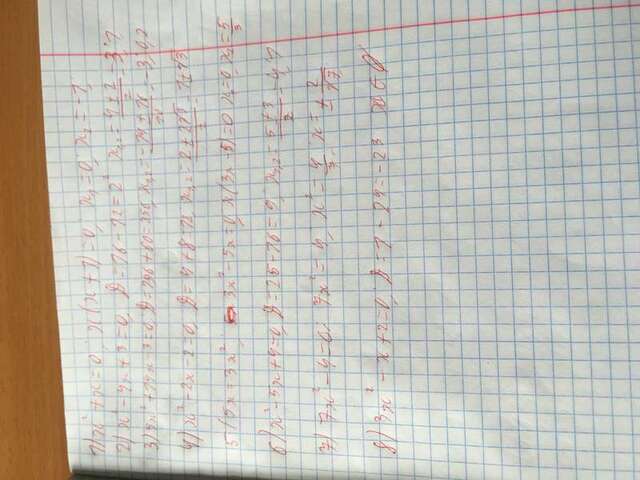 1) x² + x = 0, x(x + 1) = 0, x₁ = 0, x₂ = -1
2) x² - 4x + 3 = 0, D = 16 - 12 = 2² x₁,₂ = (4 ± 2)/2 = 3; 1
3) 5x² + 14x - 3 = 0, D = 196 + 60 = 256, x₁,₂ = (-14 ± 16)/10 = -3, 0,2
4) x² - 2x - 2 = 0, D = 4 + 8 = 12, x₁,₂ = (2 ± 2√3)/2 = 1 ± √3
5) 5x = 3x², 3x² - 5x = 0, x(3x - 5) = 0 x₁ = 0, x₂ = 5/3
6) x² - 5x + 4 = 0, D = 25 - 16 = 9, x₁,₂ = (5 ± 3)/2 = 4, 1
7) 7x² - 4 = 0, 7x² = 4, x² = 4/7 x = ± 2/√7
8) 3x² - x + 2 = 0, D = 1 - 24 = -23 x ∈ ∅